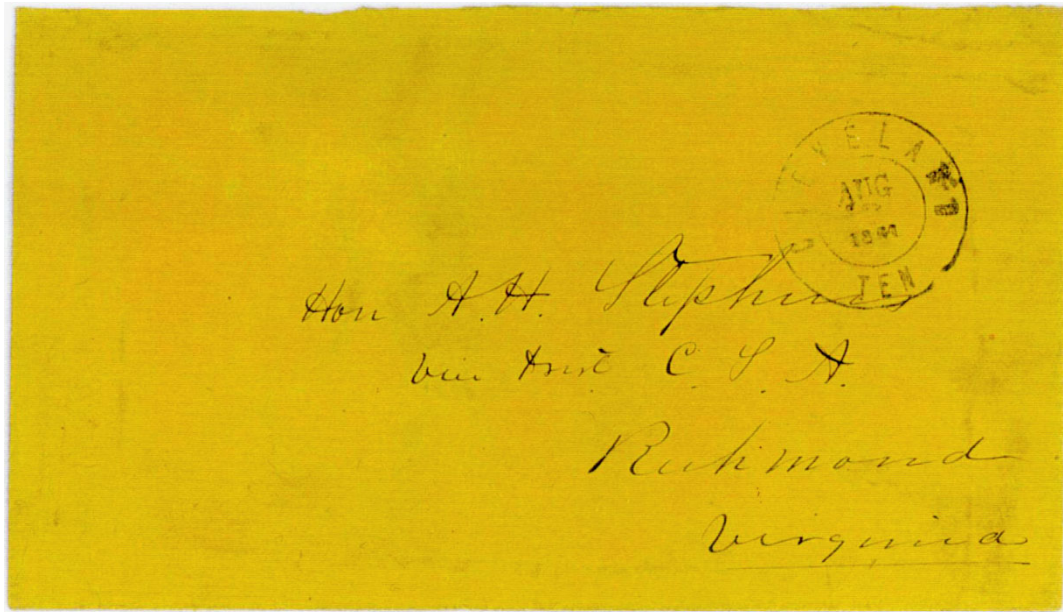 CLEVELAND
AUG
TEN
Hon A. H. Stephens
Vice Prest C. S. A.
Richmond
Virginia